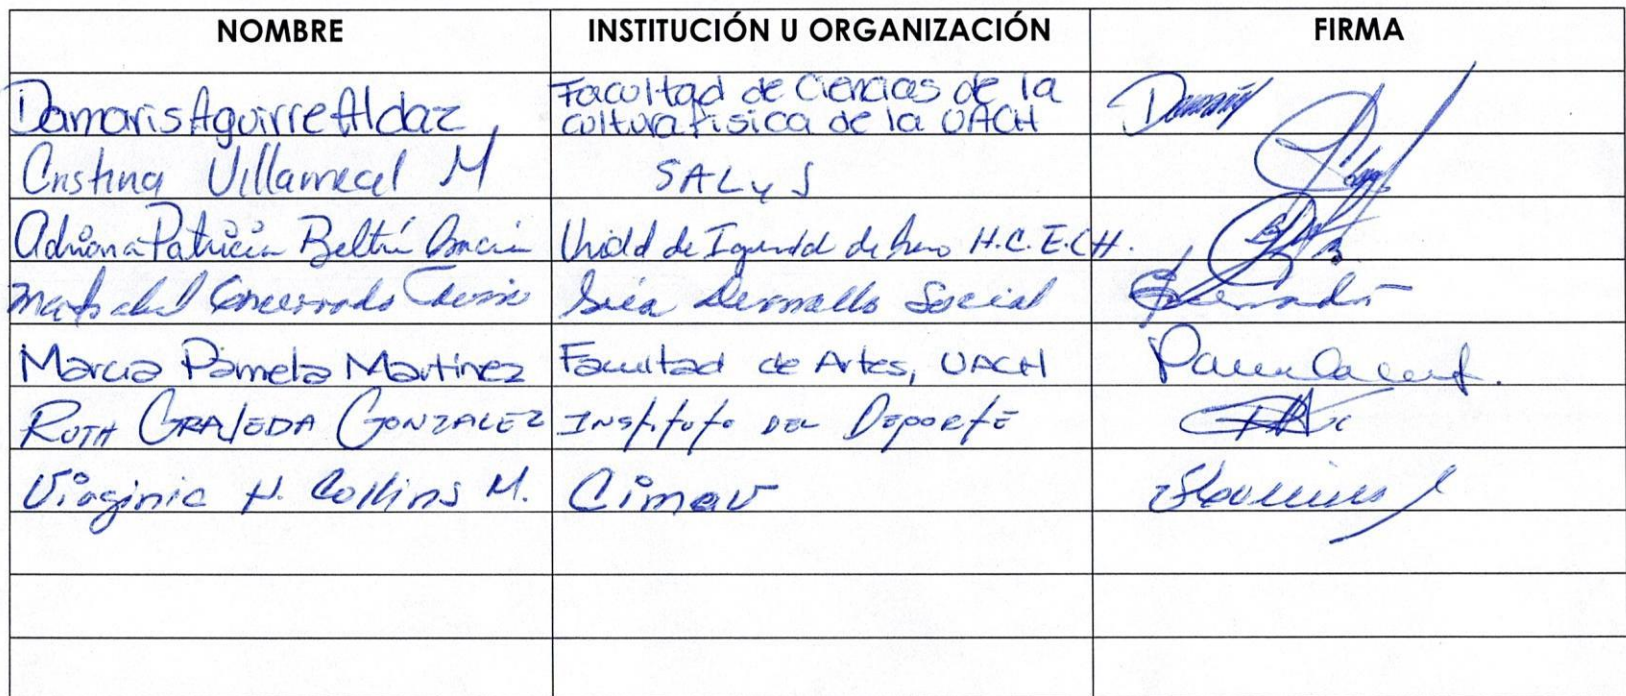 NOMBRE INSTITUCIÓN U ORGANIZACIÓN FIRMA
Damaris Aguirre Aldaz Facultad de Ciencias de la
cultura física de la UACH
Cristina Villarreal M SALyS
Adriana Patricia Beltrán Unidad de Igualdad de H.C.E.CH.
Desarrollo Social
Marcia Pamela Martínez Facultad de Artes, UACH
RUTH GRAJEDA GONZALEZ INStituto DEL DEPORTE
Virginia H. Collins M. Cimav